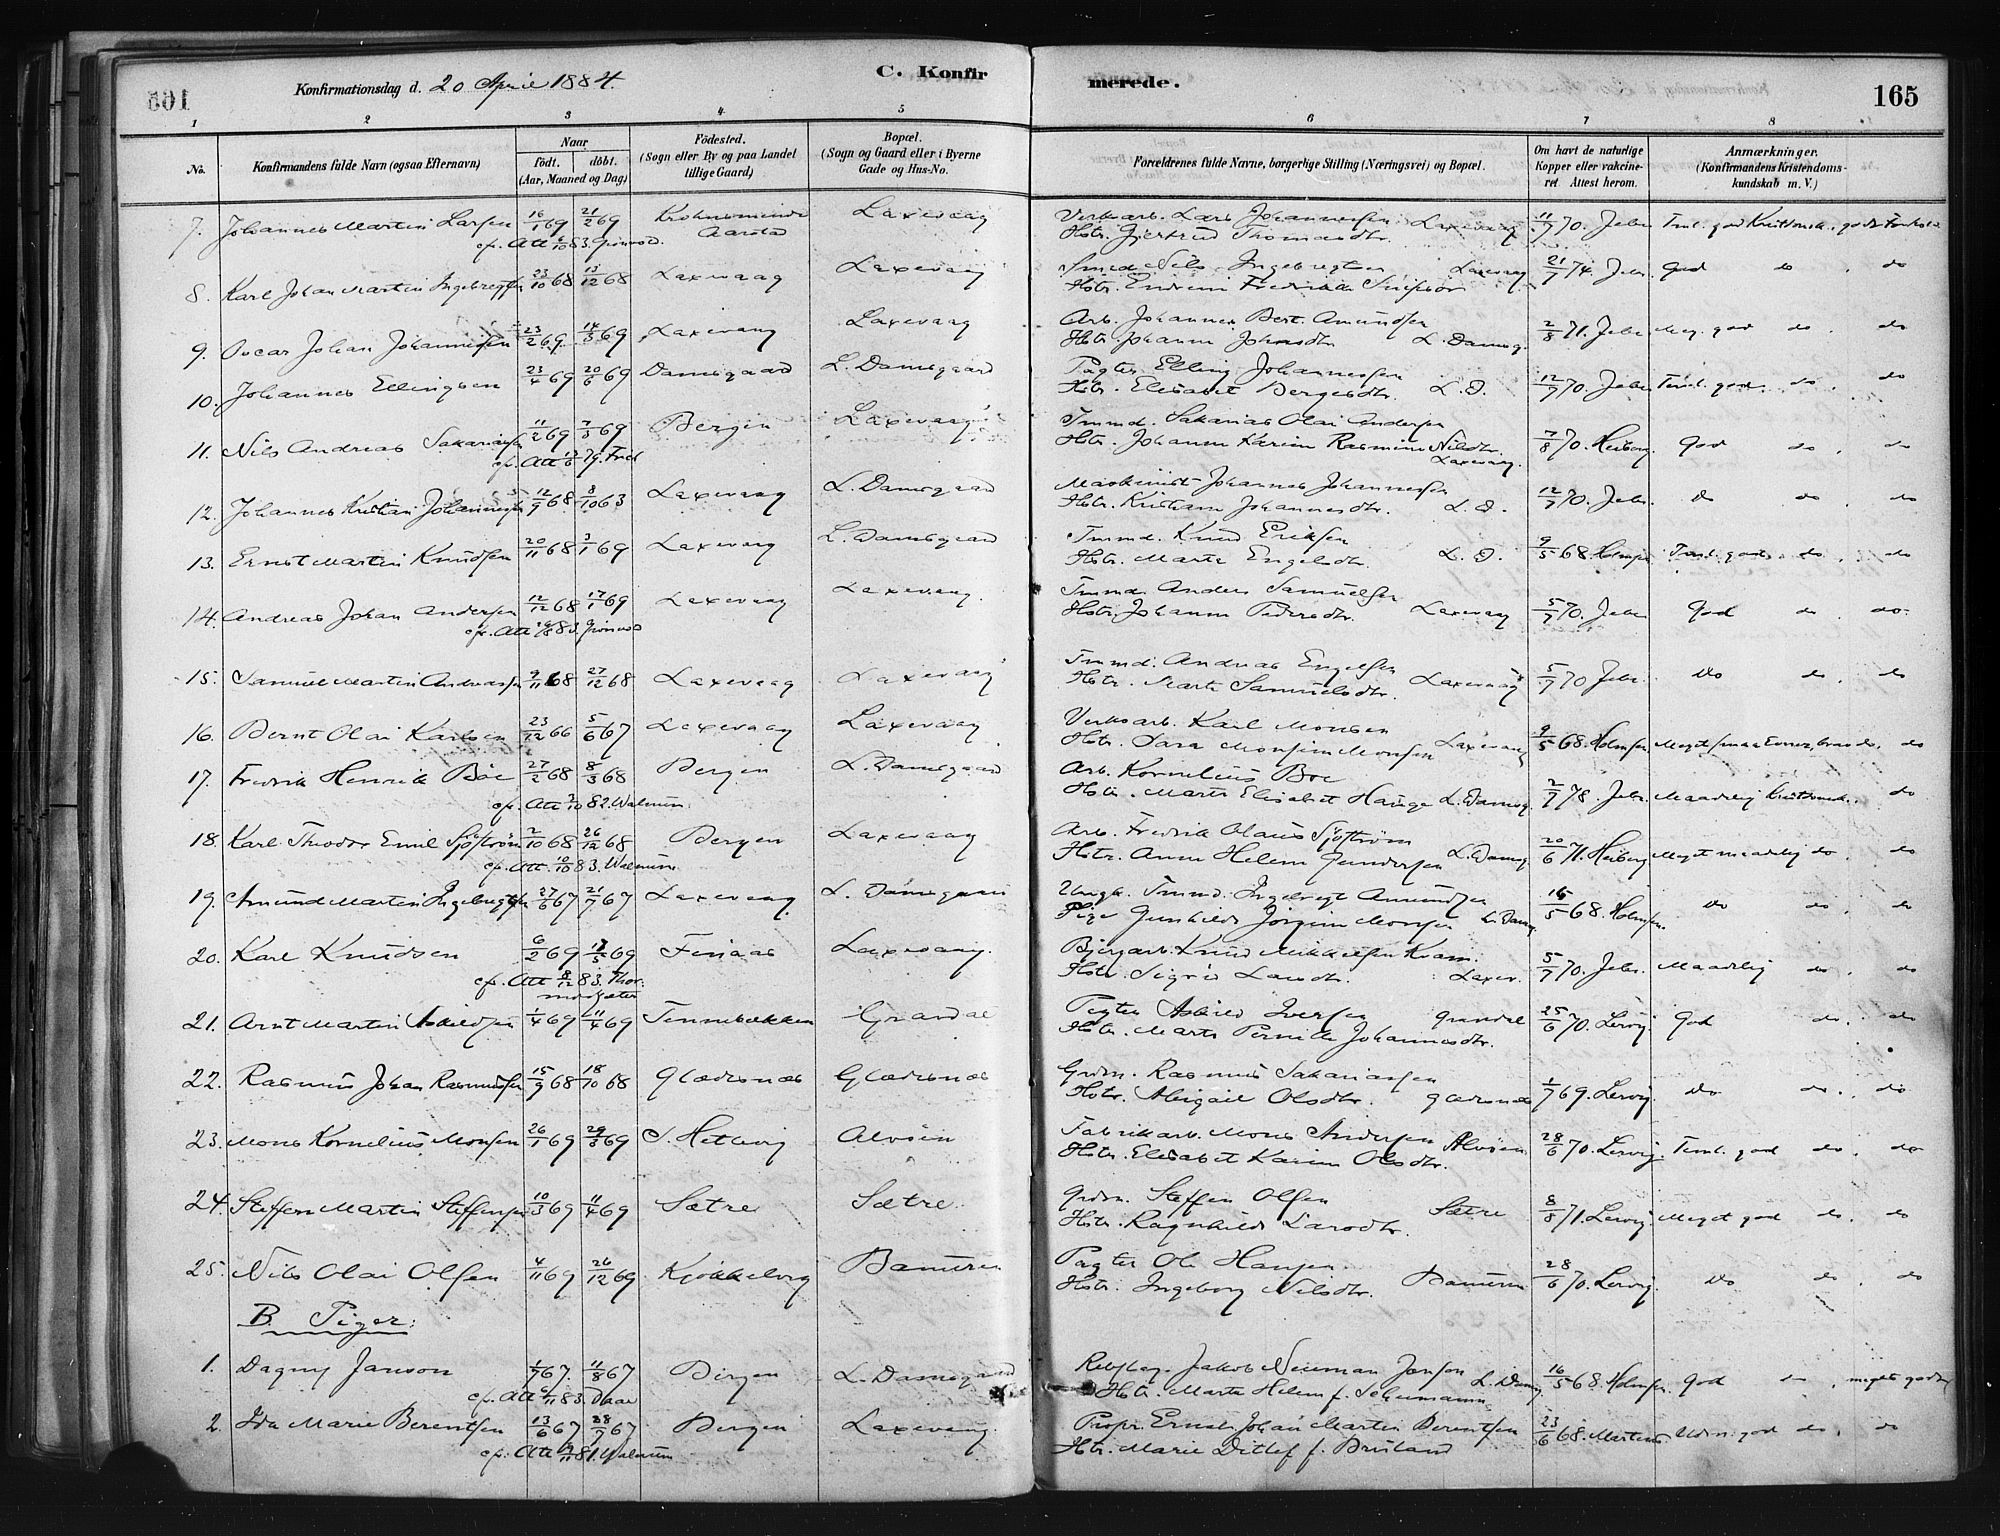 165
Konfirmationsdag d. 20 April 1884.
C. Konfirmerede.
165
1 2 3 4 5 6 7 8
No.
Konfirmandens fulde Navn (ogsaa Efternavn)
Naar
födt. döbt.
(Aar, Maaned og Dag)
Födested.
(Sogn eller By og paa Landet tillige Gaard)
Bopæl.
(Sogn og Gaard eller i Byerne Gade og Hus-No.
Forældrenes fulde Navne, borgerlige Stilling (Næringsvei) og Bopæl.
Om havt de naturlige Kopper eller vakcineret Attest herom.
Anmærkninger.
(Konfirmandens Kristendomskundskab m. V.)
7. Johannes Martin Larsen 16/1 69 21/2 69 Aarstad Laxevaag Verksarb. Lars Johannessen Laxevaag 11/7 70. Jebe
cfr. Att 83. Grönvold. Hstr. Gjertrud Thomasdtr.
8. Karl Johan Martin Ingebregtsen 23/10 68 13/12 68 Laxevaag Laxevaag Smed Nils Ingebregtsen Laxevaag 21/7 74. Jebe God do. do
9. Oscar Johan Johannessen 23/2 69. 14/3 69 Laxevaag Laxevaag Arb. Johannes Bert. Amundsen 2/8 71. Jebe Meg. god do. do
Hstr. Johanne Johnsdtr. L. Damsg.
10. Johannes Ellingsen 23/4 69 20/6 69 Damsgaard L. Damsgaard Pagter Elling Johannessen 12/7 70. Jebe Teml. god. do. do
Hstr. Elisabet Bergesdtr. L. D.
11. Nils Andreas Sakariassen 11/2 69 7/3 69 Bergen Laxevaag Tmmd. Sakarias Olai Andersen 7/8 70. Heiberg God do. do
Hstr. Johanne Karine Rasmine Nilsdtr. Laxevaag.
12. Johannes Kristian Johannessen 12/9 68 8/10 63 Laxevaag L. Damsgaard Maskinist Johannes Johannessen 12/7 70. Jebe. Do do do
Hstr. Kristiane Johannesdtr. L. D.
13. Ernst Martin Knudsen 20/11 68 3/1 69 Laxevaag L. Damsgaard Tmmd. Knud Eriksen 9/5 68. Holmsen Teml. god do. do
Hstr. Marta Engelsdtr. L. D.
14. Andreas Johan Andersen 12/12 68 17/1 69 Laxevaag Laxevaag. Tmmd. Anders Samuelsen 5/7 70. Jebe God do do.
cfr. Att 83. Grönvold Hstr. Johanne Pedersdtr. Laxevaag
15. Samuel Martin Andreassen 9/11 68 27/12 68 Laxevaag Laxevaag Tmmd. Andreas Engelsen 5/7 70 Jebe. Do do. do
Hstr. Marta Samuelsdtr. Laxevaag
16. Bernt Olai Karlsen 23/12 66 5/6 67 Laxevaag Laxevaag Verksarb. Karl Monsen 9/5 68. Holmsen
Hstr. Sara Monsine Monsen Laxevaag
17. Fredrik Henrik Böe 27/2 68 8/3 68 Bergen L. Damsgaard Arb. Kornelius Böe 2/7 78. Jebe. Maadelig Kristdomsk. do
cfr. Att 82. Walnum. Hstr. Marta Elisabet Hauge L. Damsg.
18. Karl Theodor Emil Sjöström 2/10 68 26/12 68 Bergen Laxevaag Arb. Fredrik Olaus Sjöström 20/6 71. Heiberg Meget maadelig do. do
cfr. Att. 10/10 83. Walnum. Hstr. Anne Helene Gundersen L. Damsg.
19. Amund Martin Ingebregtsen 27/6 67 21/7 67 Laxevaag L. Damsgaard Ungk. Tmmd. Ingebregt Amundsen 16/5 68. Holmsen. Do do. do
Pige Gunhild Jörgine Monsen L. Damsg.
20. Karl Knudsen 6/2 69 17/5 69 Finaas Laxevaag. Bjergarb. Knud Mikkelsen Kvam 5/7 70. Jebe. Maadelig do. do
cfr. Att 8/12 83. Thormodsæter Hstr. Sigrid Larsdtr. Laxev.
21. Arnt Martin Askildsen 1/4 69 11/4 69 Tennebækken Gravdal Pagter Askild Iversen Gravdal 25/6 70. Lervig God do. do
Hstr. Marta Pernille Johannesdtr.
22. Rasmus Johan Rasmussen 15/9 68 18/10 68 Gladesnæs Gladesnæs Grdm. Rasmus Sakariassen 1/7 69. Lervig Do do. do
Hstr. Abigael Olsdtr.
23. Mons Kornelius Monsen 26/1 69 29/3 69 S. Hetlevig Alvöen Fabrikarb. Mons Andersen Alvöen 28/6 70. Lervig. Teml. god do. do
Hstr. Elisabet Karine Olsdtr.
24. Steffen Martin Steffensen 10/3 69 11/4 69 Sætre Sætre. Grdm. Steffen Olsen Sætre 8/8 71. Lervig Meget god do. do
Hstr. Ragnhild Larsdtr.
25. Nils Olai Olsen 4/11 69 26/12 69 Kjökkelvig Pagter Ole Hansen 28/6 70. Lervig. Do do. do
Hstr. Ingeborg Nilsdtr.
B. Piger:
1. Dagny Janson 1/7 67. 11/8 67 Bergen L. Damsgaard Rebslag. Jakob Neuman Janson L. Damsg 16/5 68. Holmsen God do meget god
cfr. Att 83. Daae Hstr. Marta Helene f. Schumann
2. Ida Marie Berentsen 13/6 67 28/7 67 Bergen Laxevaag. Propr. Ernst Johan Martin Berentsen 23/6 68. Martens. Udm. god do. do
cfr. Att 81. Walnum Hstr. Marie Ditlef f. Bruland